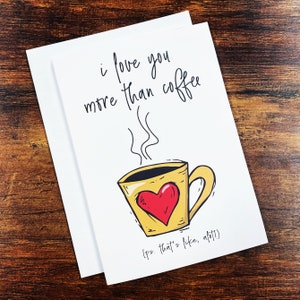 i love you
more than coffee
(ps, that's like, alot!)